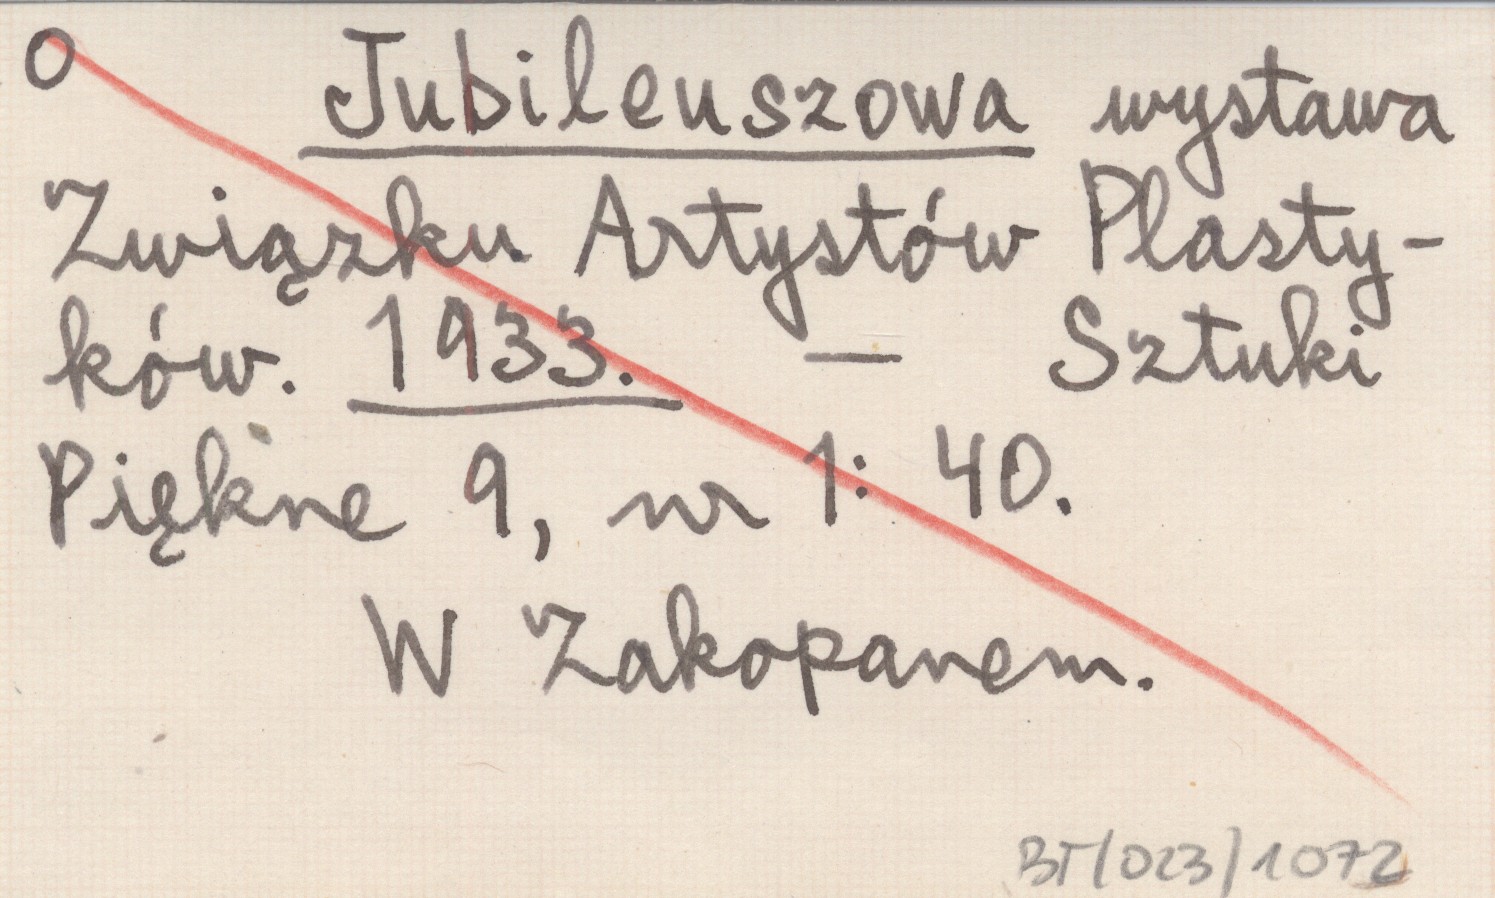 O Jubileuszowa wystawa
Związku Artystów Plasty-
ków. 1933. — Sztuki
Piękne 9, nr 1: 40.
W Zakopanem.
BT/023/1072